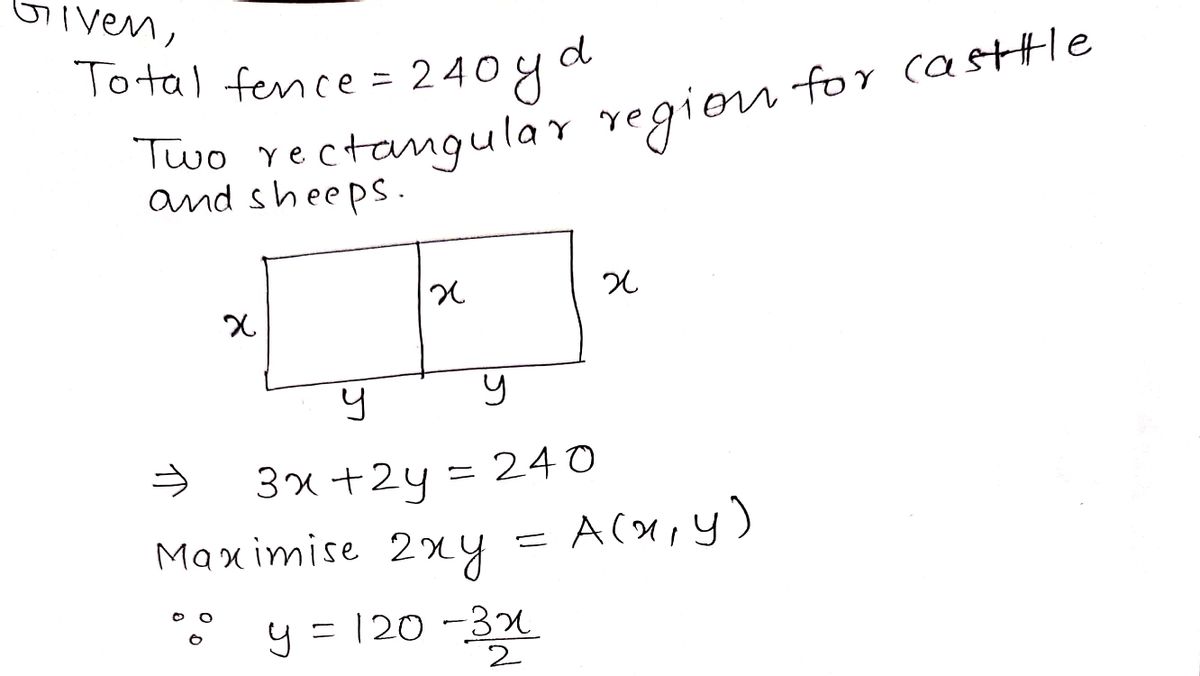 Given,
Total fence = 240 yd
Two rectangular region for casttle
and sheeps.
x x x
y y
⇒ 3x + 2y = 240
Maximise 2xy = A(x, y)
∵ y = 120 - 3x/2